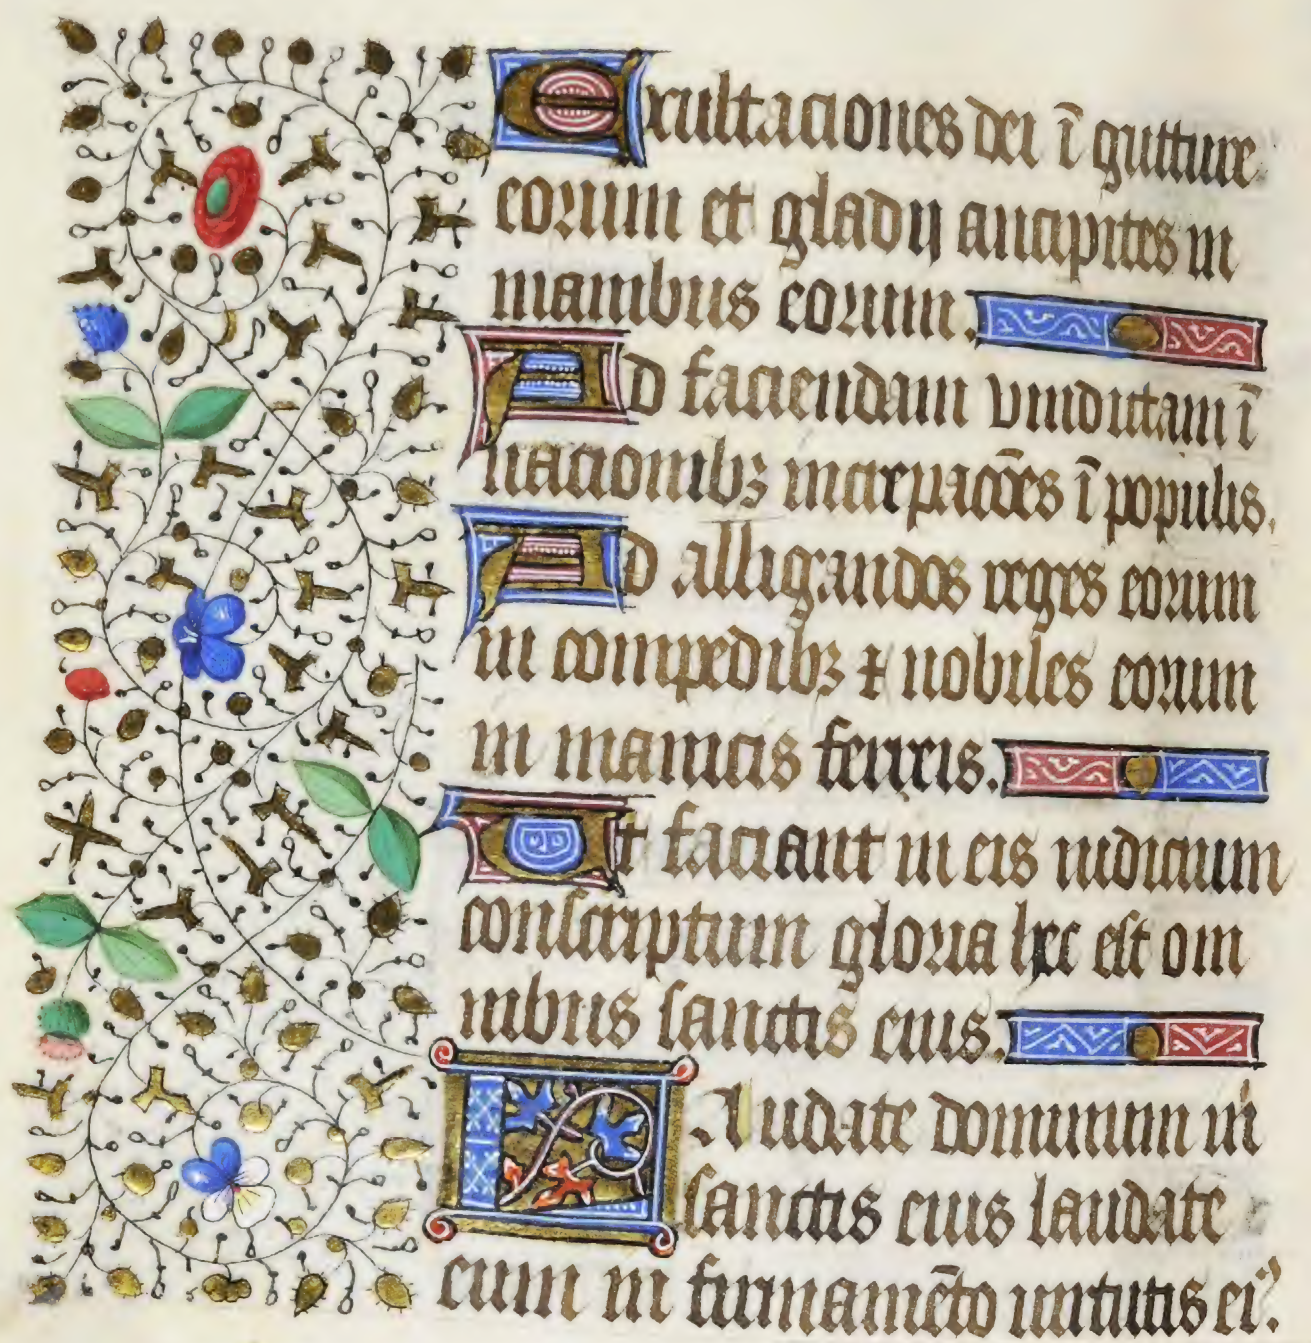 Exultaciones dei ī gutture
eorum et gladij ancipites in
manibus eorum.
Ad faciendam vindictam ī
nacionibꝫ increpacōes ī populis.
Ad alligandos reges eorum
in compedibꝫ ⁊ nobiles eorum
in manicis ferreis.
Ut faciant in eis iudicium
conscriptum gloria hec est om
nibus sanctis eius.
Laudate dominum in
sanctis eius laudate
eum in firmamēto uirtutis eiꝰ.